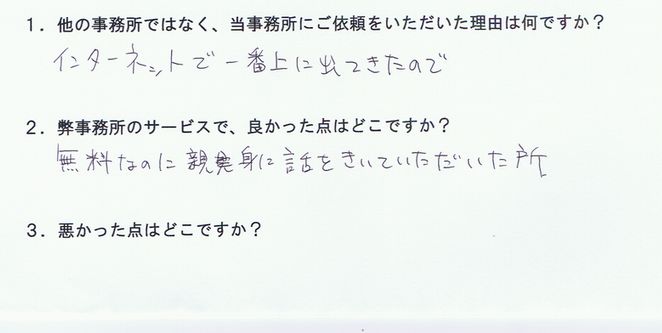 1．他の事務所ではなく、当事務所にご依頼をいただいた理由は何ですか？
インターネットで一番上に出てきたので
2．弊事務所のサービスで、良かった点はどこですか？
無料なのに親身に話をきいていただいた所
3．悪かった点はどこですか？